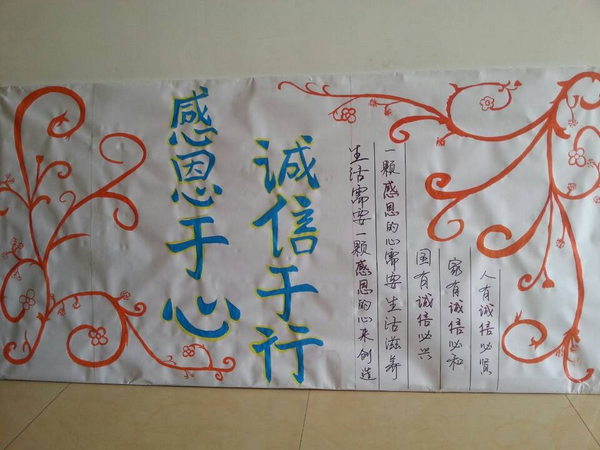 感恩于心
诚信于行
生活需要一颗感恩的心来创造
一颗感恩的心需要生活滋养
国有诚信必兴
家有诚信必和
人有诚信必贤